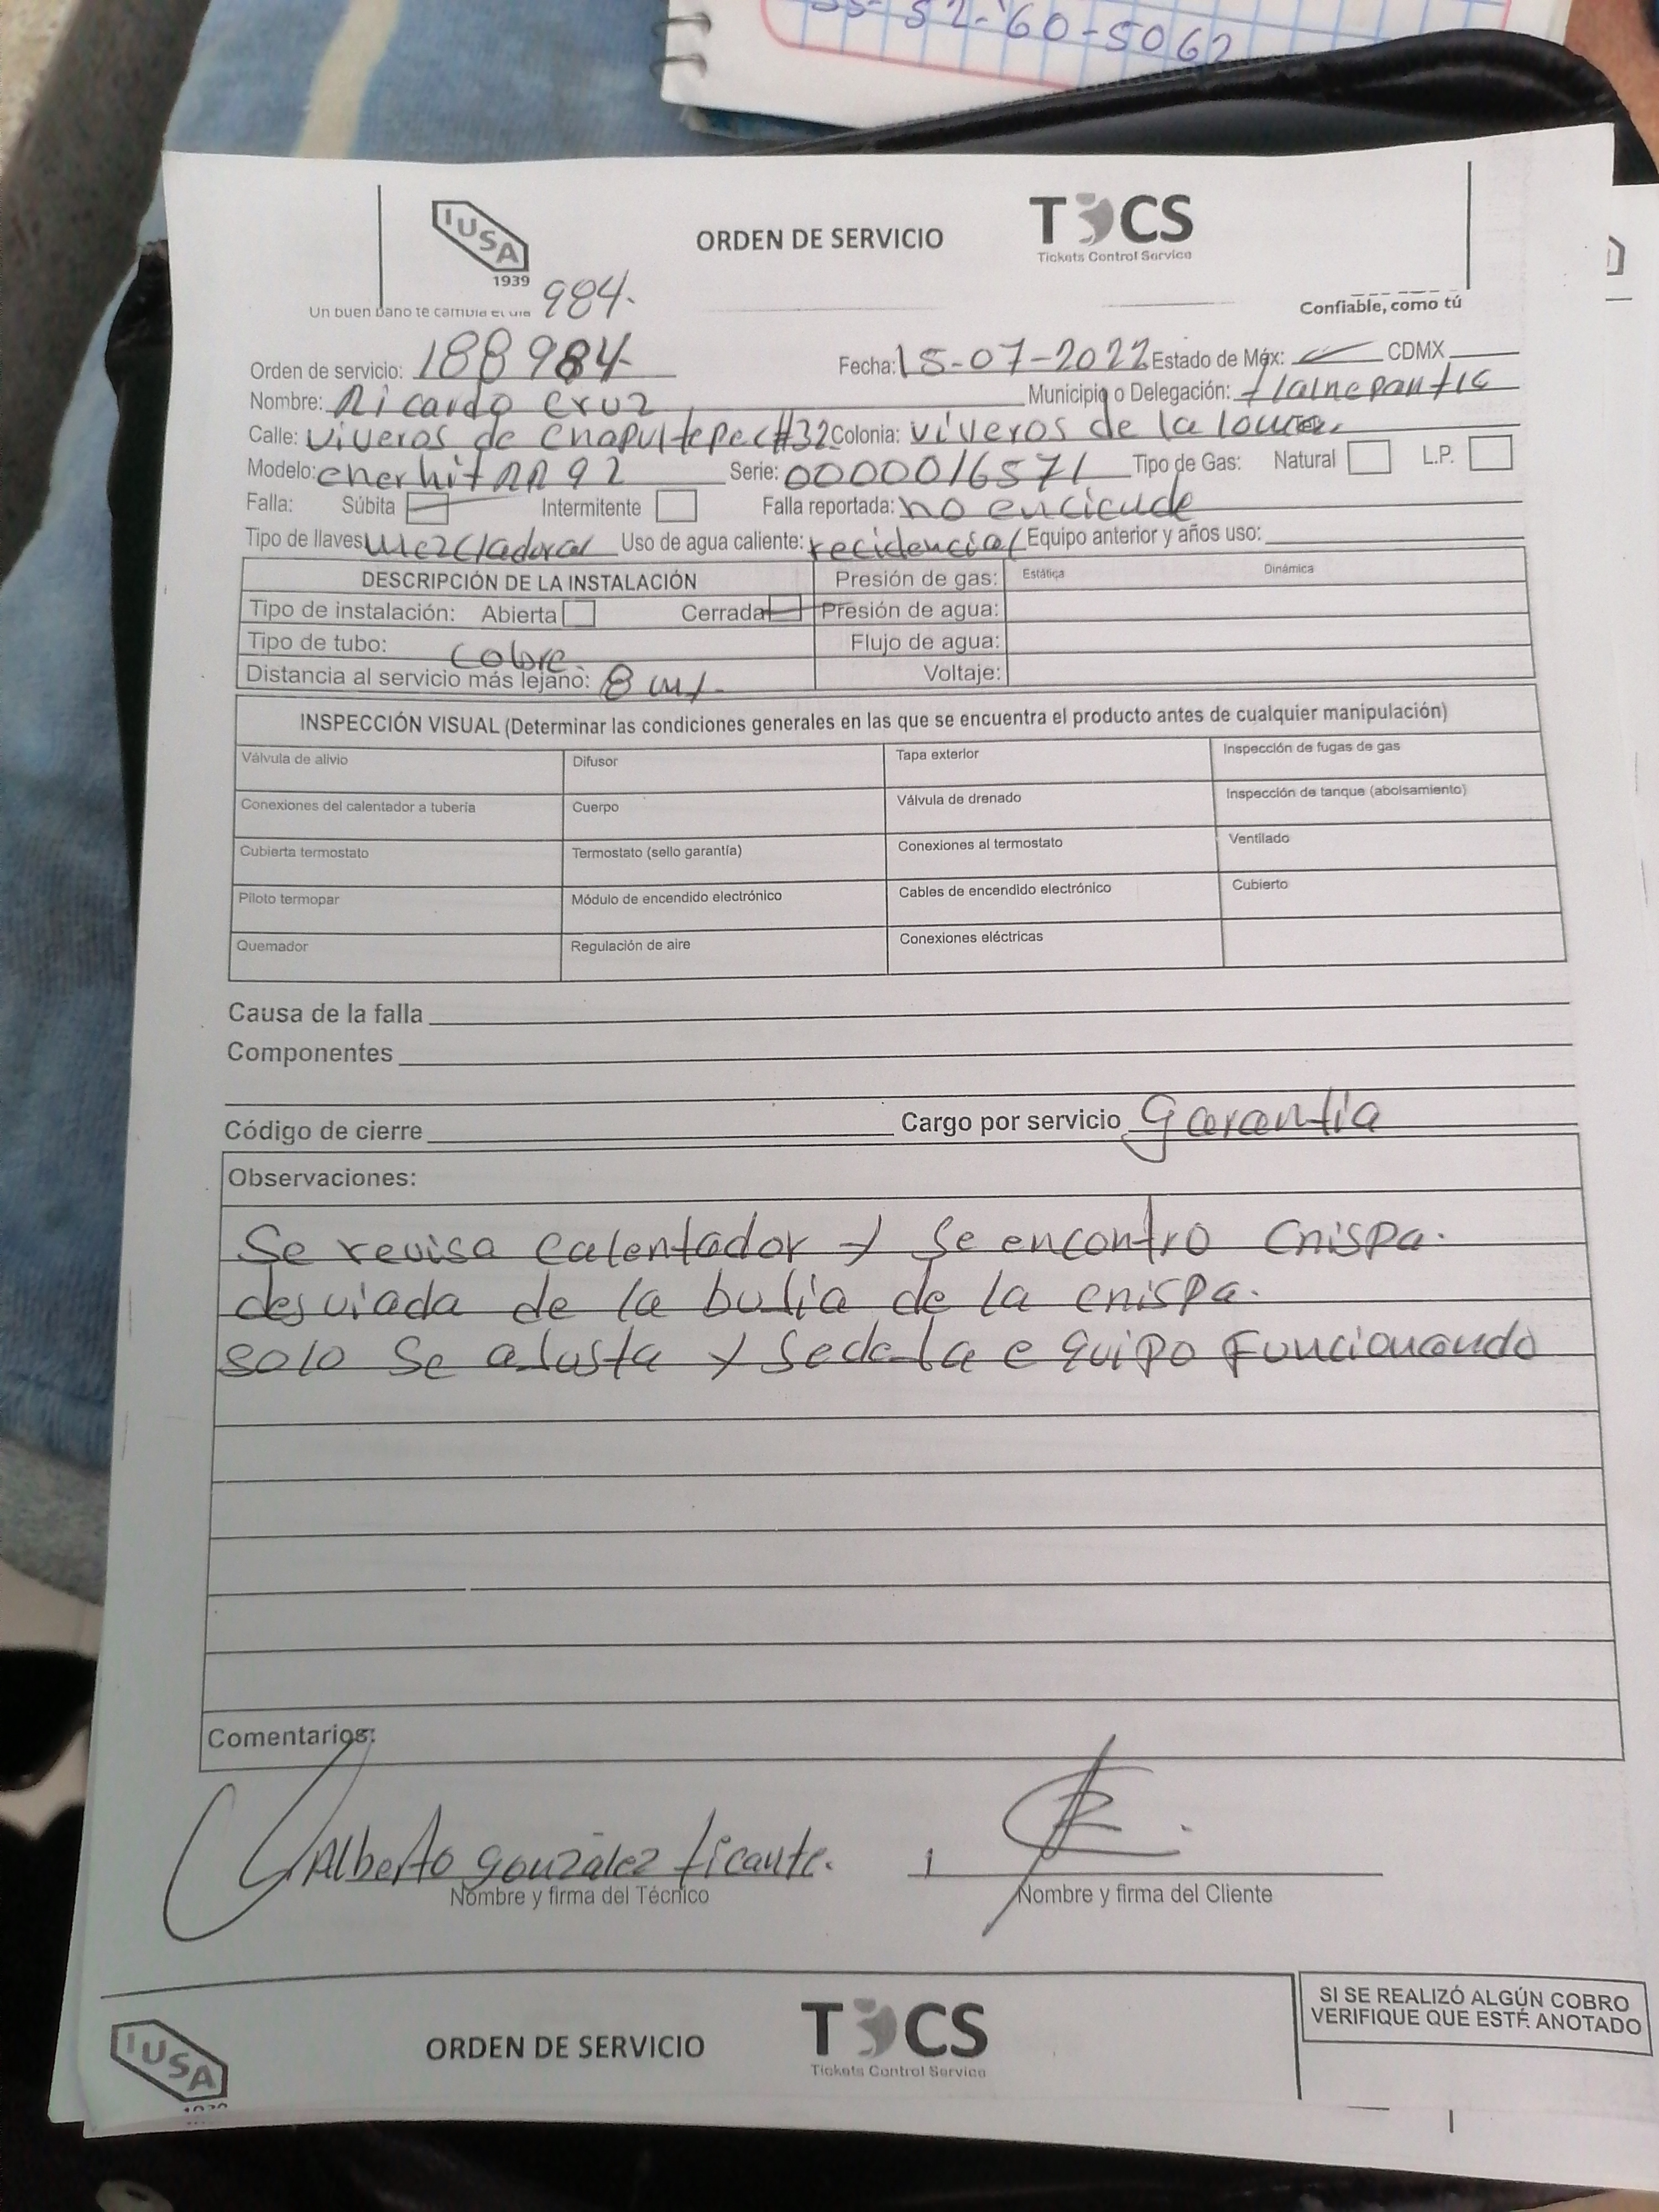 52-60-5062
IUSA
1939
ORDEN DE SERVICIO
TCS
Tickets Control Service
Un buen baño te cambia el día 984.
Confiable, como tú
Orden de servicio: 188984 Fecha: 15-07-2022 Estado de Méx: CDMX
Nombre: Ricardo cruz Municipio o Delegación: tlalnepantla
Calle: viveros de chapultepec #32 Colonia: viveros de la loma
Modelo: enerhit RR 92 Serie: 0000016571 Tipo de Gas: Natural L.P.
Falla: Súbita Intermitente Falla reportada: no enciende
Tipo de llaves mezcladoral Uso de agua caliente: recidencial Equipo anterior y años uso:
DESCRIPCIÓN DE LA INSTALACIÓN Presión de gas: Estática Dinámica
Tipo de instalación: Abierta Cerrada Presión de agua:
Tipo de tubo: cobre. Flujo de agua:
Distancia al servicio más lejano: 8 mt. Voltaje:
INSPECCIÓN VISUAL (Determinar las condiciones generales en las que se encuentra el producto antes de cualquier manipulación)
Válvula de alivio Difusor Tapa exterior Inspección de fugas de gas
Conexiones del calentador a tubería Cuerpo Válvula de drenado Inspección de tanque (abolsamiento)
Cubierta termostato Termostato (sello garantía) Conexiones al termostato Ventilado
Piloto termopar Módulo de encendido electrónico Cables de encendido electrónico Cubierto
Quemador Regulación de aire Conexiones eléctricas
Causa de la falla
Componentes
Código de cierre Cargo por servicio Garantia
Observaciones:
Se revisa calentador y se encontro chispa.
desviada de la bujia de la chispa.
solo se ajusta y sedeja equipo Funcionando
Comentarios:
Alberto gonzalez licante.
Nombre y firma del Técnico Nombre y firma del Cliente
IUSA
ORDEN DE SERVICIO
TCS
Tickets Control Service
SI SE REALIZÓ ALGÚN COBRO
VERIFIQUE QUE ESTÉ ANOTADO